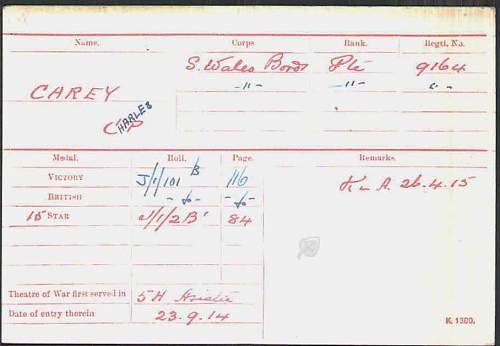 Name. Corps Rank. Regtl. No.
CAREY S. Wales Bord Pte 9164
-"- -"- "-
C HARLES
Medal. Roll. Page. Remarks.
VICTORY J/1/101 B 116 K in A. 26.4.15
BRITISH -do- -do-
15 STAR J/1/2B' 84
Theatre of War first served in 5H Asiatic
Date of entry therein 23.9.14
K. 1380.